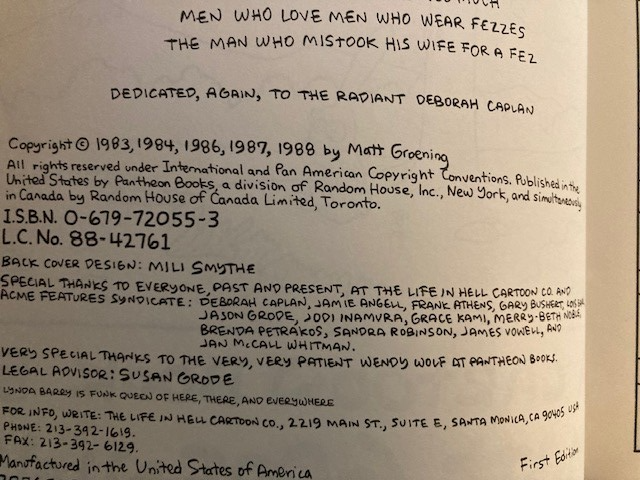 MEN WHO LOVE MEN WHO WEAR FEZZES
THE MAN WHO MISTOOK HIS WIFE FOR A FEZ
DEDICATED, AGAIN, TO THE RADIANT DEBORAH CAPLAN
Copyright © 1983, 1984, 1986, 1987, 1988 by Matt Groening
All rights reserved under International and Pan American Copyright Conventions. Published in the
United States by Pantheon Books, a division of Random House, Inc., New York, and simultaneously
in Canada by Random House of Canada Limited, Toronto.
I.S.B.N. 0-679-72055-3
L.C. No. 88-42761
BACK COVER DESIGN: MILI SMYTHE
SPECIAL THANKS TO EVERYONE, PAST AND PRESENT, AT THE LIFE IN HELL CARTOON CO. AND
ACME FEATURES SYNDICATE: DEBORAH CAPLAN, JAMIE ANGELL, FRANK ATHENS, GARY BUSHERT,
JASON GRODE, JODI INAMURA, GRACE KAMI, MERRY-BETH NOBLE,
BRENDA PETRAKOS, SANDRA ROBINSON, JAMES VOWELL, AND
JAN McCALL WHITMAN.
VERY SPECIAL THANKS TO THE VERY, VERY PATIENT WENDY WOLF AT PANTHEON BOOKS.
LEGAL ADVISOR: SUSAN GRODE
LYNDA BARRY IS FUNK QUEEN OF HERE, THERE, AND EVERYWHERE
FOR INFO, WRITE: THE LIFE IN HELL CARTOON CO., 2219 MAIN ST., SUITE E, SANTA MONICA, CA 90405 USA
PHONE: 213-392-1619.
FAX: 213-392-6129.
Manufactured in the United States of America
First Edition